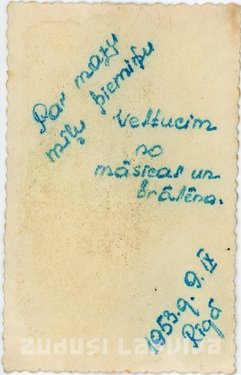 Par mazu
mīļu piemiņu
Veltucim
no
māsicas un
brālēna.
1953.g. 9. IX
Rīgā
ZUDUSI LATVIJA